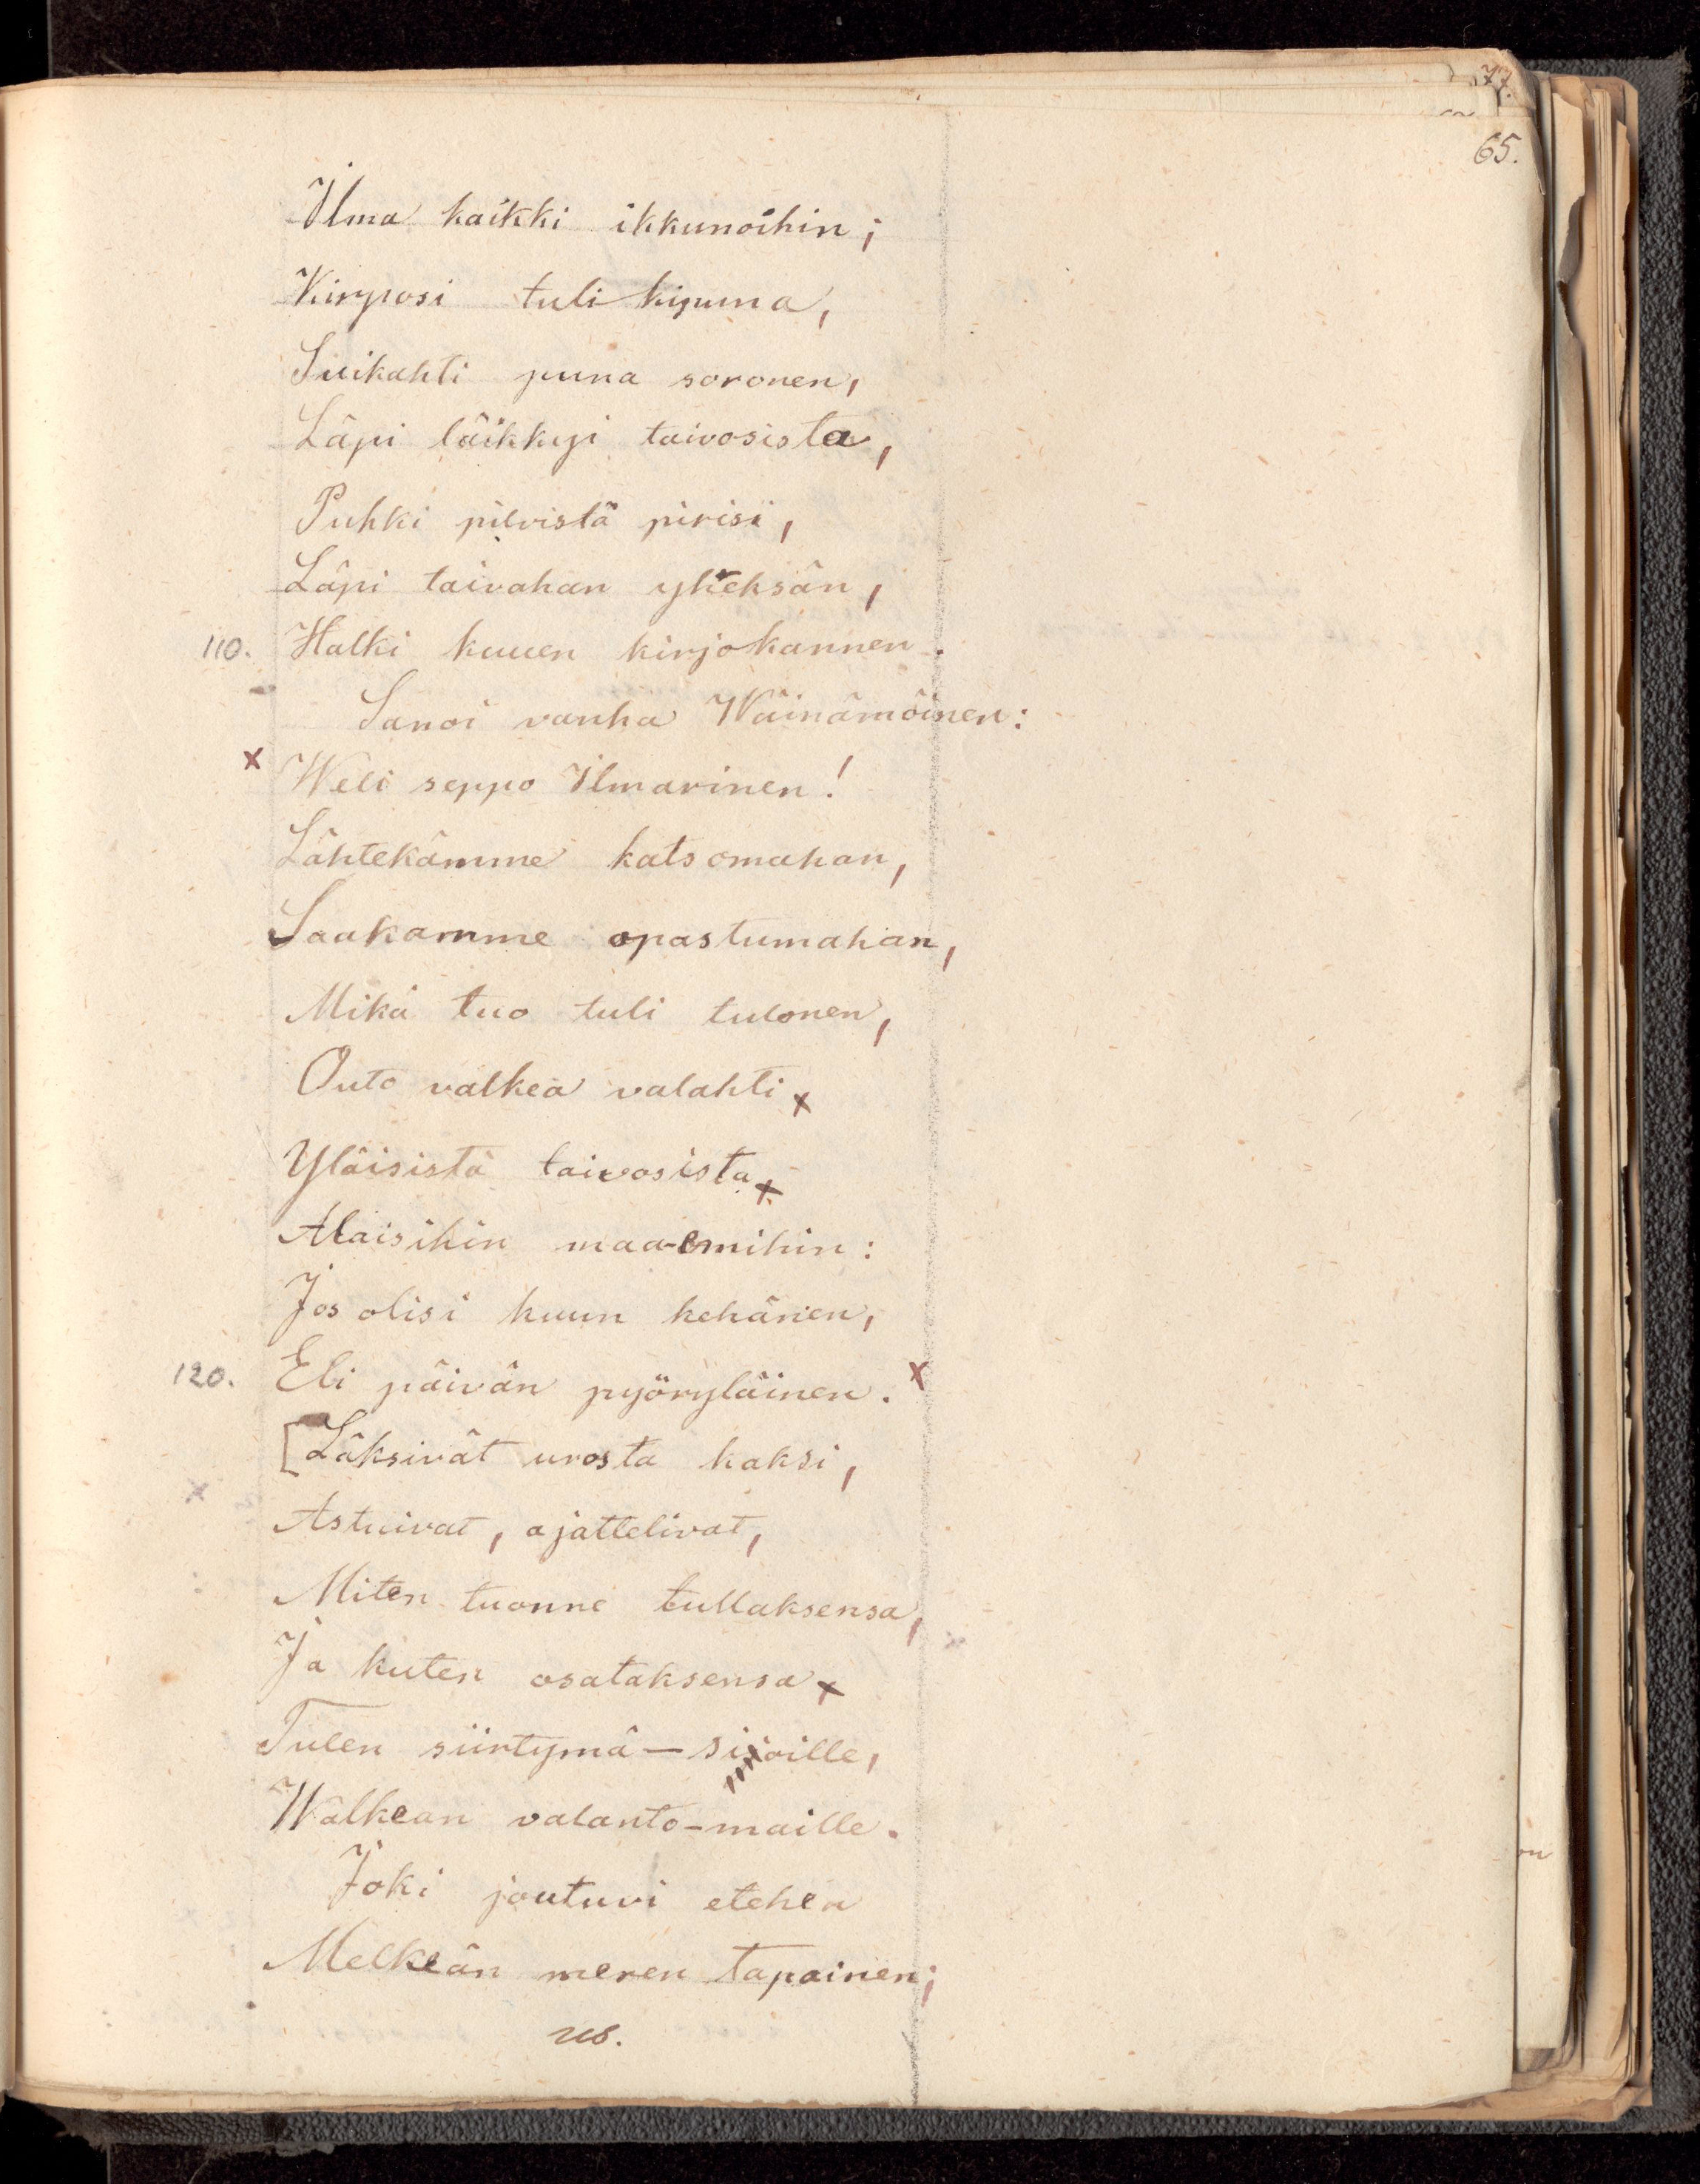 77.
65.
Ilma kaikki ikkunoihin;
Kirposi tuli kipuna,
Suikahti puna soronen,
Läpi läikkyi taivosista,
Puhki pilvistä pirisi,
Läpi taivahan yheksän,
110. Halki kuuen kirjokannen.
Sanoi vanha Wäinämöinen:
x Weli seppo Ilmarinen!
Lähtekämme katsomahan,
Saakamme opastumahan,
Mikä tuo tuli tulonen,
Outo valkea valahti x
Yläisistä taivosista x
Alaisihin maa-emihin:
Jos olisi kuun kehänen,
120. Eli päivän pyöryläinen. x
[Läksivät urosta kaksi,
x
Astuivat, ajattelivat,
Miten tuonne tullaksensa,
Ja kuten osataksensa x
Tulen siirtymä-sijoille,
Walkean valanto-maille.
Joki joutuvi etehen
Melkeän meren tapainen;